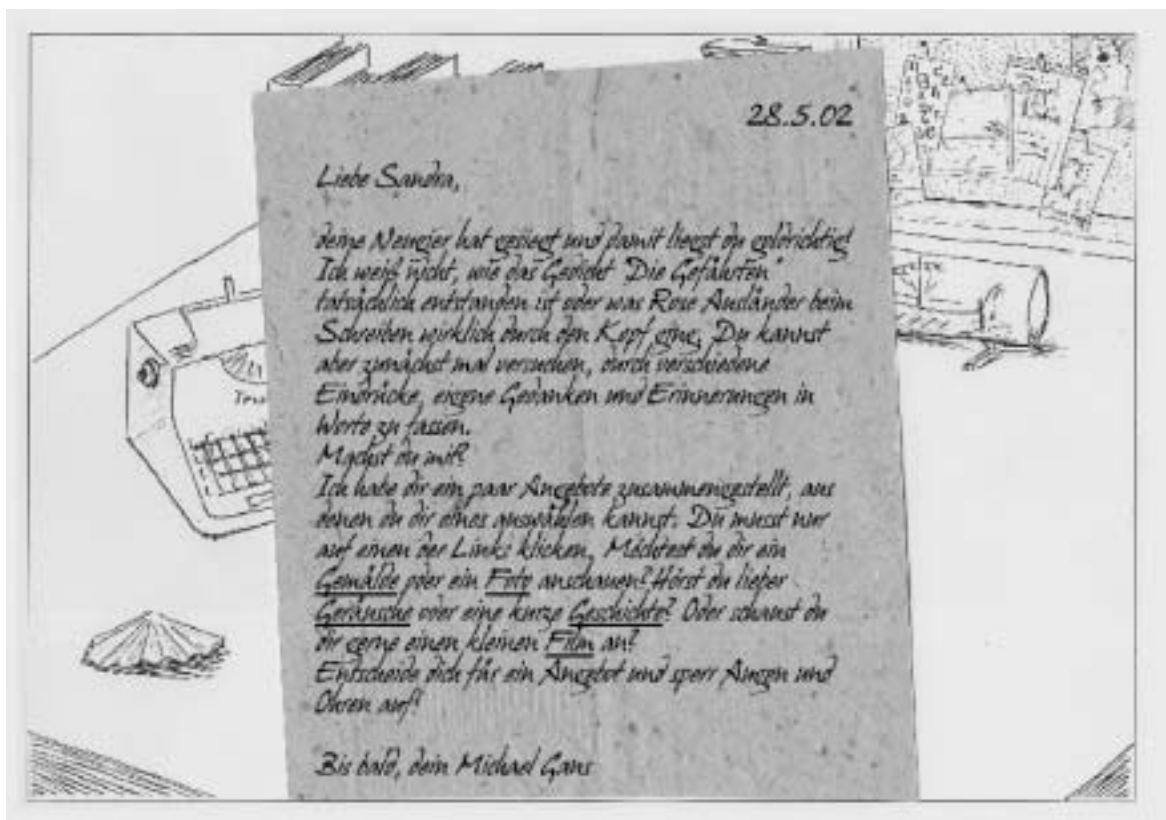 28.5.02
Liebe Sandra,
deine Neugier hat gesiegt und damit liegst du goldrichtig!
Ich weiß nicht, wie das Gedicht "Die Gefährten"
tatsächlich entstanden ist oder was Rose Ausländer beim
Schreiben wirklich durch den Kopf ging. Du kannst
aber zunächst mal versuchen, durch verschiedene
Eindrücke, eigene Gedanken und Erinnerungen in
Worte zu fassen.
Machst du mit?
Ich habe dir ein paar Angebote zusammengestellt, aus
denen du dir eines auswählen kannst. Du musst nur
auf einen der Links klicken. Möchtest du dir ein
Gemälde oder ein Foto anschauen? Hörst du lieber
Geräusche oder eine kurze Geschichte? Oder schaust du
dir gerne einen kleinen Film an?
Entscheide dich für ein Angebot und sperr Augen und
Ohren auf!
Bis bald, dein Michael Gans